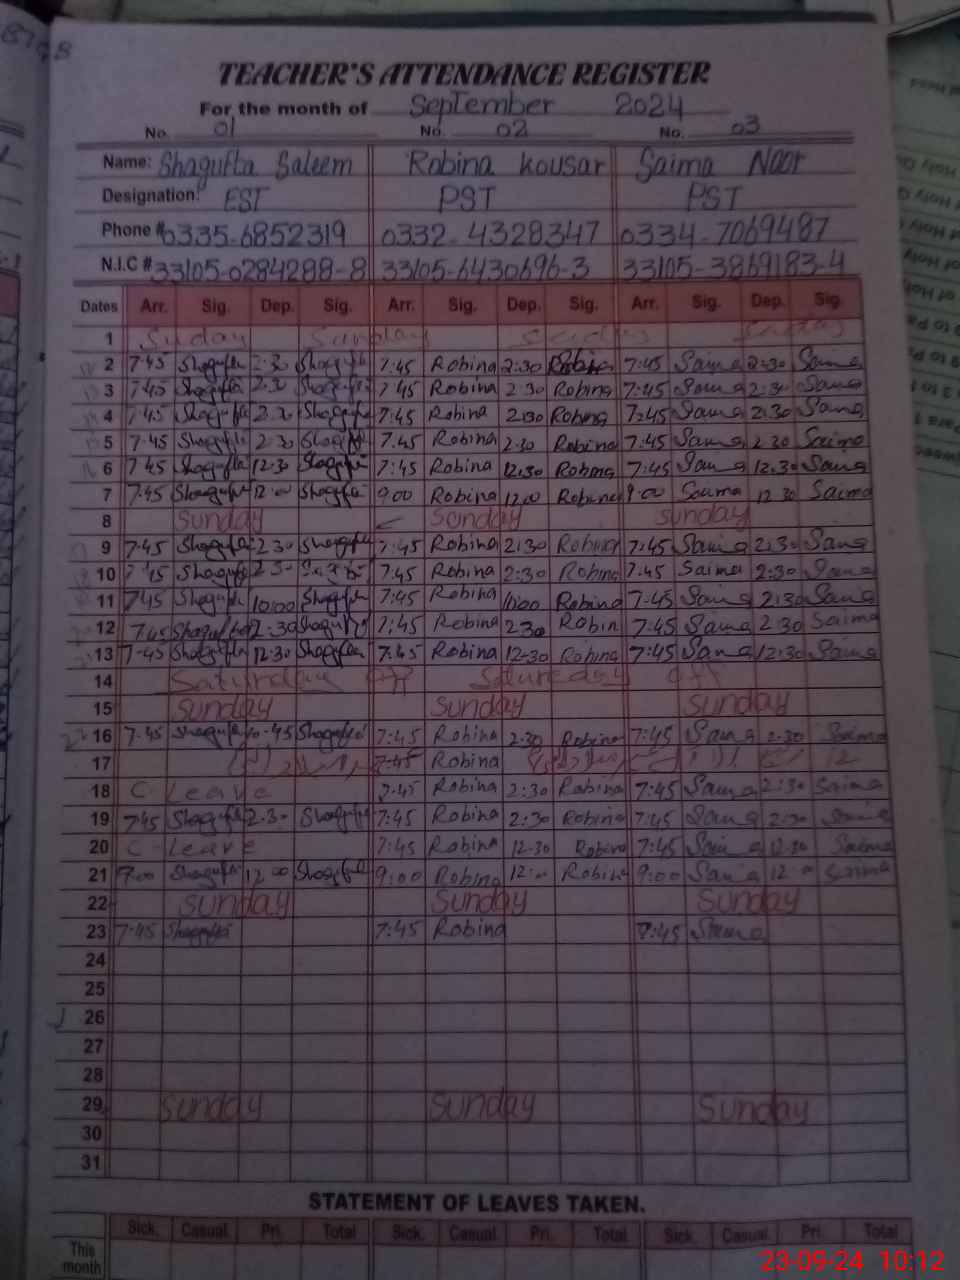 TEACHER'S ATTENDANCE REGISTER
For the month of September 2024
No. 01 No. 02 No. 03
Name: Shagufta Saleem Robina Kousar Saima Noor
Designation: EST PST PST
Phone # 0335-6852319 0332-4328347 0334-7069487
N.I.C # 33105-0284288-8 33105-6430696-3 33105-3869183-4
Dates Arr. Sig. Dep. Sig. Arr. Sig. Dep. Sig. Arr. Sig. Dep. Sig.
1 Sunday Sunday
2 7:45 Shagufta 2:30 Shagufta 7:45 Robina 2:30 Robina 7:45 Saima 2:30 Saima
3 7:45 Shagufta 2:30 Shagufta 7:45 Robina 2:30 Robina 7:45 Saima 2:30 Saima
4 7:45 Shagufta 2:30 Shagufta 7:45 Robina 2:30 Robina 7:45 Saima 2:30 Saima
5 7:45 Shagufta 2:30 Shagufta 7:45 Robina 2:30 Robina 7:45 Saima 2:30 Saima
6 7:45 Shagufta 12:30 Shagufta 7:45 Robina 12:30 Robina 7:45 Saima 12:30 Saima
7 7:45 Shagufta 12:00 Shagufta 9:00 Robina 12:00 Robina 9:00 Saima 12:30 Saima
8 Sunday Sunday Sunday
9 7:45 Shagufta 2:30 Shagufta 7:45 Robina 2:30 Robina 7:45 Saima 2:30 Saima
10 7:45 Shagufta 2:30 7:45 Robina 2:30 Robina 7:45 Saima 2:30 Saima
11 7:45 Shagufta 10:00 Shagufta 7:45 Robina Robina 7:45 Saima 2:30 Saima
12 7:45 Shagufta 2:30 Shagufta 7:45 Robina 2:30 Robin 7:45 Saima 2:30 Saima
13 7:45 Shagufta 12:30 Shagufta 7:45 Robina 12:30 Robina 7:45 Saima 12:30 Saima
14 Saturday off Saturday off
15 Sunday Sunday Sunday
16 7:45 Shagufta 10:45 Shagufta 7:45 Robina 2:30 Robina 7:45 Saima 2:30 Saima
17 7:45 Robina
18 C Leave 7:45 Robina 2:30 Robina 7:45 Saima 2:30 Saima
19 7:45 Shagufta 2:30 Shagufta 7:45 Robina 2:30 Robina 7:45 Saima 2:30 Saima
20 C-Leave 7:45 Robina 12:30 Robina 7:45 Saima 12:30 Saima
21 9:00 Shagufta 12:00 Shagufta 9:00 Robina 12:00 Robina 9:00 Saima 12:00 Saima
22 Sunday Sunday Sunday
23 7:45 Shagufta 7:45 Robina 7:45 Saima
24
25
26
27
28
29 Sunday Sunday Sunday
30
31
STATEMENT OF LEAVES TAKEN.
Sick. Casual. Pri. Total Sick. Casual. Pri. Total Sick. Casual. Pri. Total
This month
23-09-24 10:12